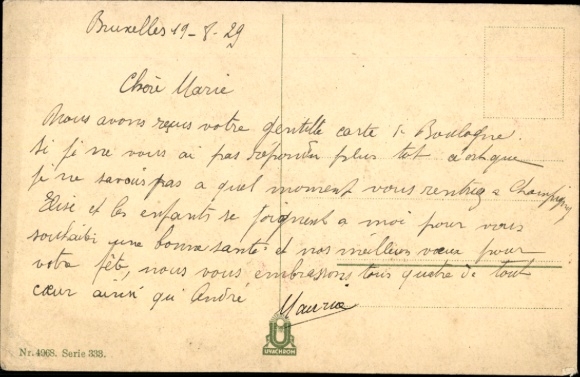 Bruxelles 19-8-29
Chère Marie
Nous avons reçus votre gentille carte d Boulogne.
Si je ne vous ai pas répondu plus tot c'est que
je ne savais pas a quel moment vous rentrez a Champigny
Elise et les enfants se joignent a moi pour vous
souhaiter une bonne santé et nos meilleurs vœux pour
votre fête, nous vous embrassons tous quatre de tout
cœur ainsi qu' André
Maurice
U
UVACHROM
Nr. 4968. Serie 333.